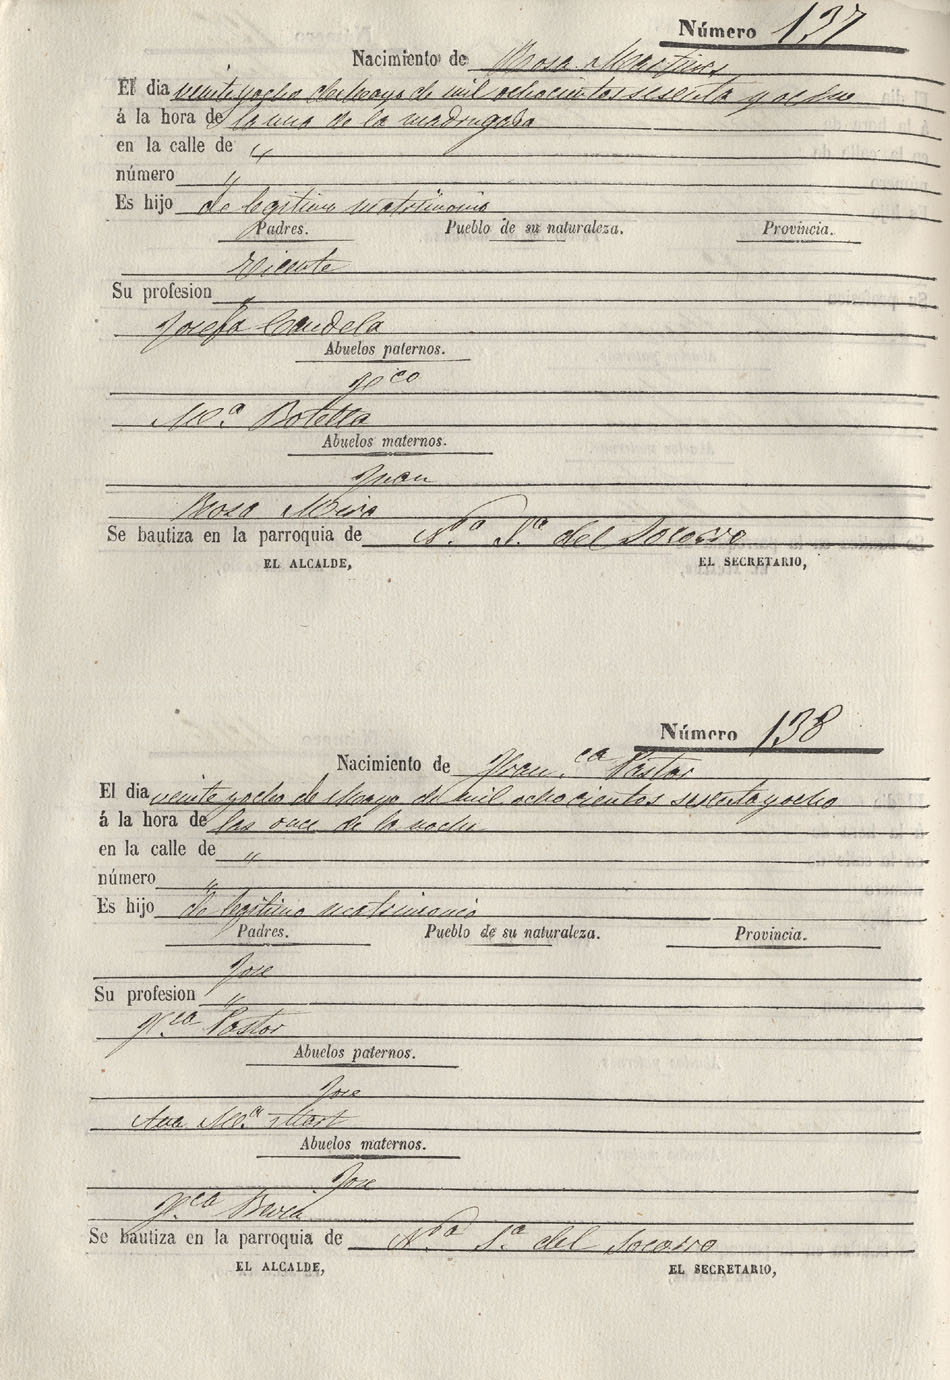 Número 137
Nacimiento de Rosa Martines
El dia veinte y ocho de Mayo de mil ochocientos sesenta y ocho
á la hora de la una de la madrugada
en la calle de "
número "
Es hijo de legitimo matrimonio
Padres. Pueblo de su naturaleza. Provincia.
Vicente
Su profesion "
Josefa Candela
Abuelos paternos.
Fco
M.ª Botella
Abuelos maternos.
Juan
Rosa Mira
Se bautiza en la parroquia de N.ª S.ª del Socorro
EL ALCALDE, EL SECRETARIO,
Número 138
Nacimiento de Fran.ca Pastor
El dia veinte y ocho de Mayo de mil ochocientos sesenta y ocho
á la hora de las once de la noche
en la calle de "
número "
Es hijo de legitimo matrimonio
Padres. Pueblo de su naturaleza. Provincia.
Jose
Su profesion "
F.ca Pastor
Abuelos paternos.
Jose
Ana M.ª
Abuelos maternos.
Jose
F.ca
Se bautiza en la parroquia de N.ª S.ª del Socorro
EL ALCALDE, EL SECRETARIO,